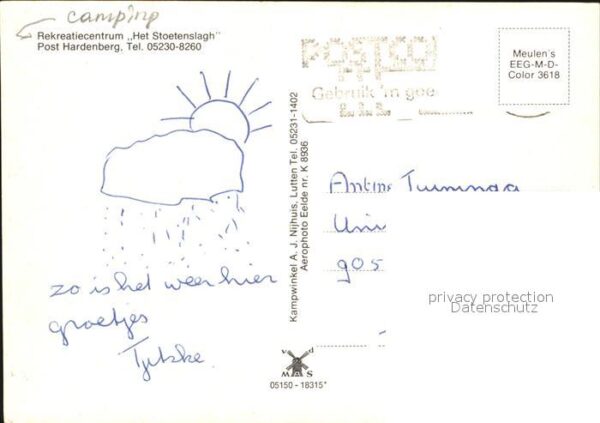 camping
Rekreatiecentrum „Het Stoetenslagh"
Post Hardenberg, Tel. 05230-8260
zo is het weer hier
groetjes
Tjitske.
Kampwinkel A. J. Nijhuis, Lutten Tel. 05231-1402
Aerophoto Eelde nr. K 8936
v d
M S
05150 - 18315*
POSTCO
Gebruik 'm goe
Meulen's
EEG-M-D-
Color 3618
Uni
905
privacy protection
Datenschutz